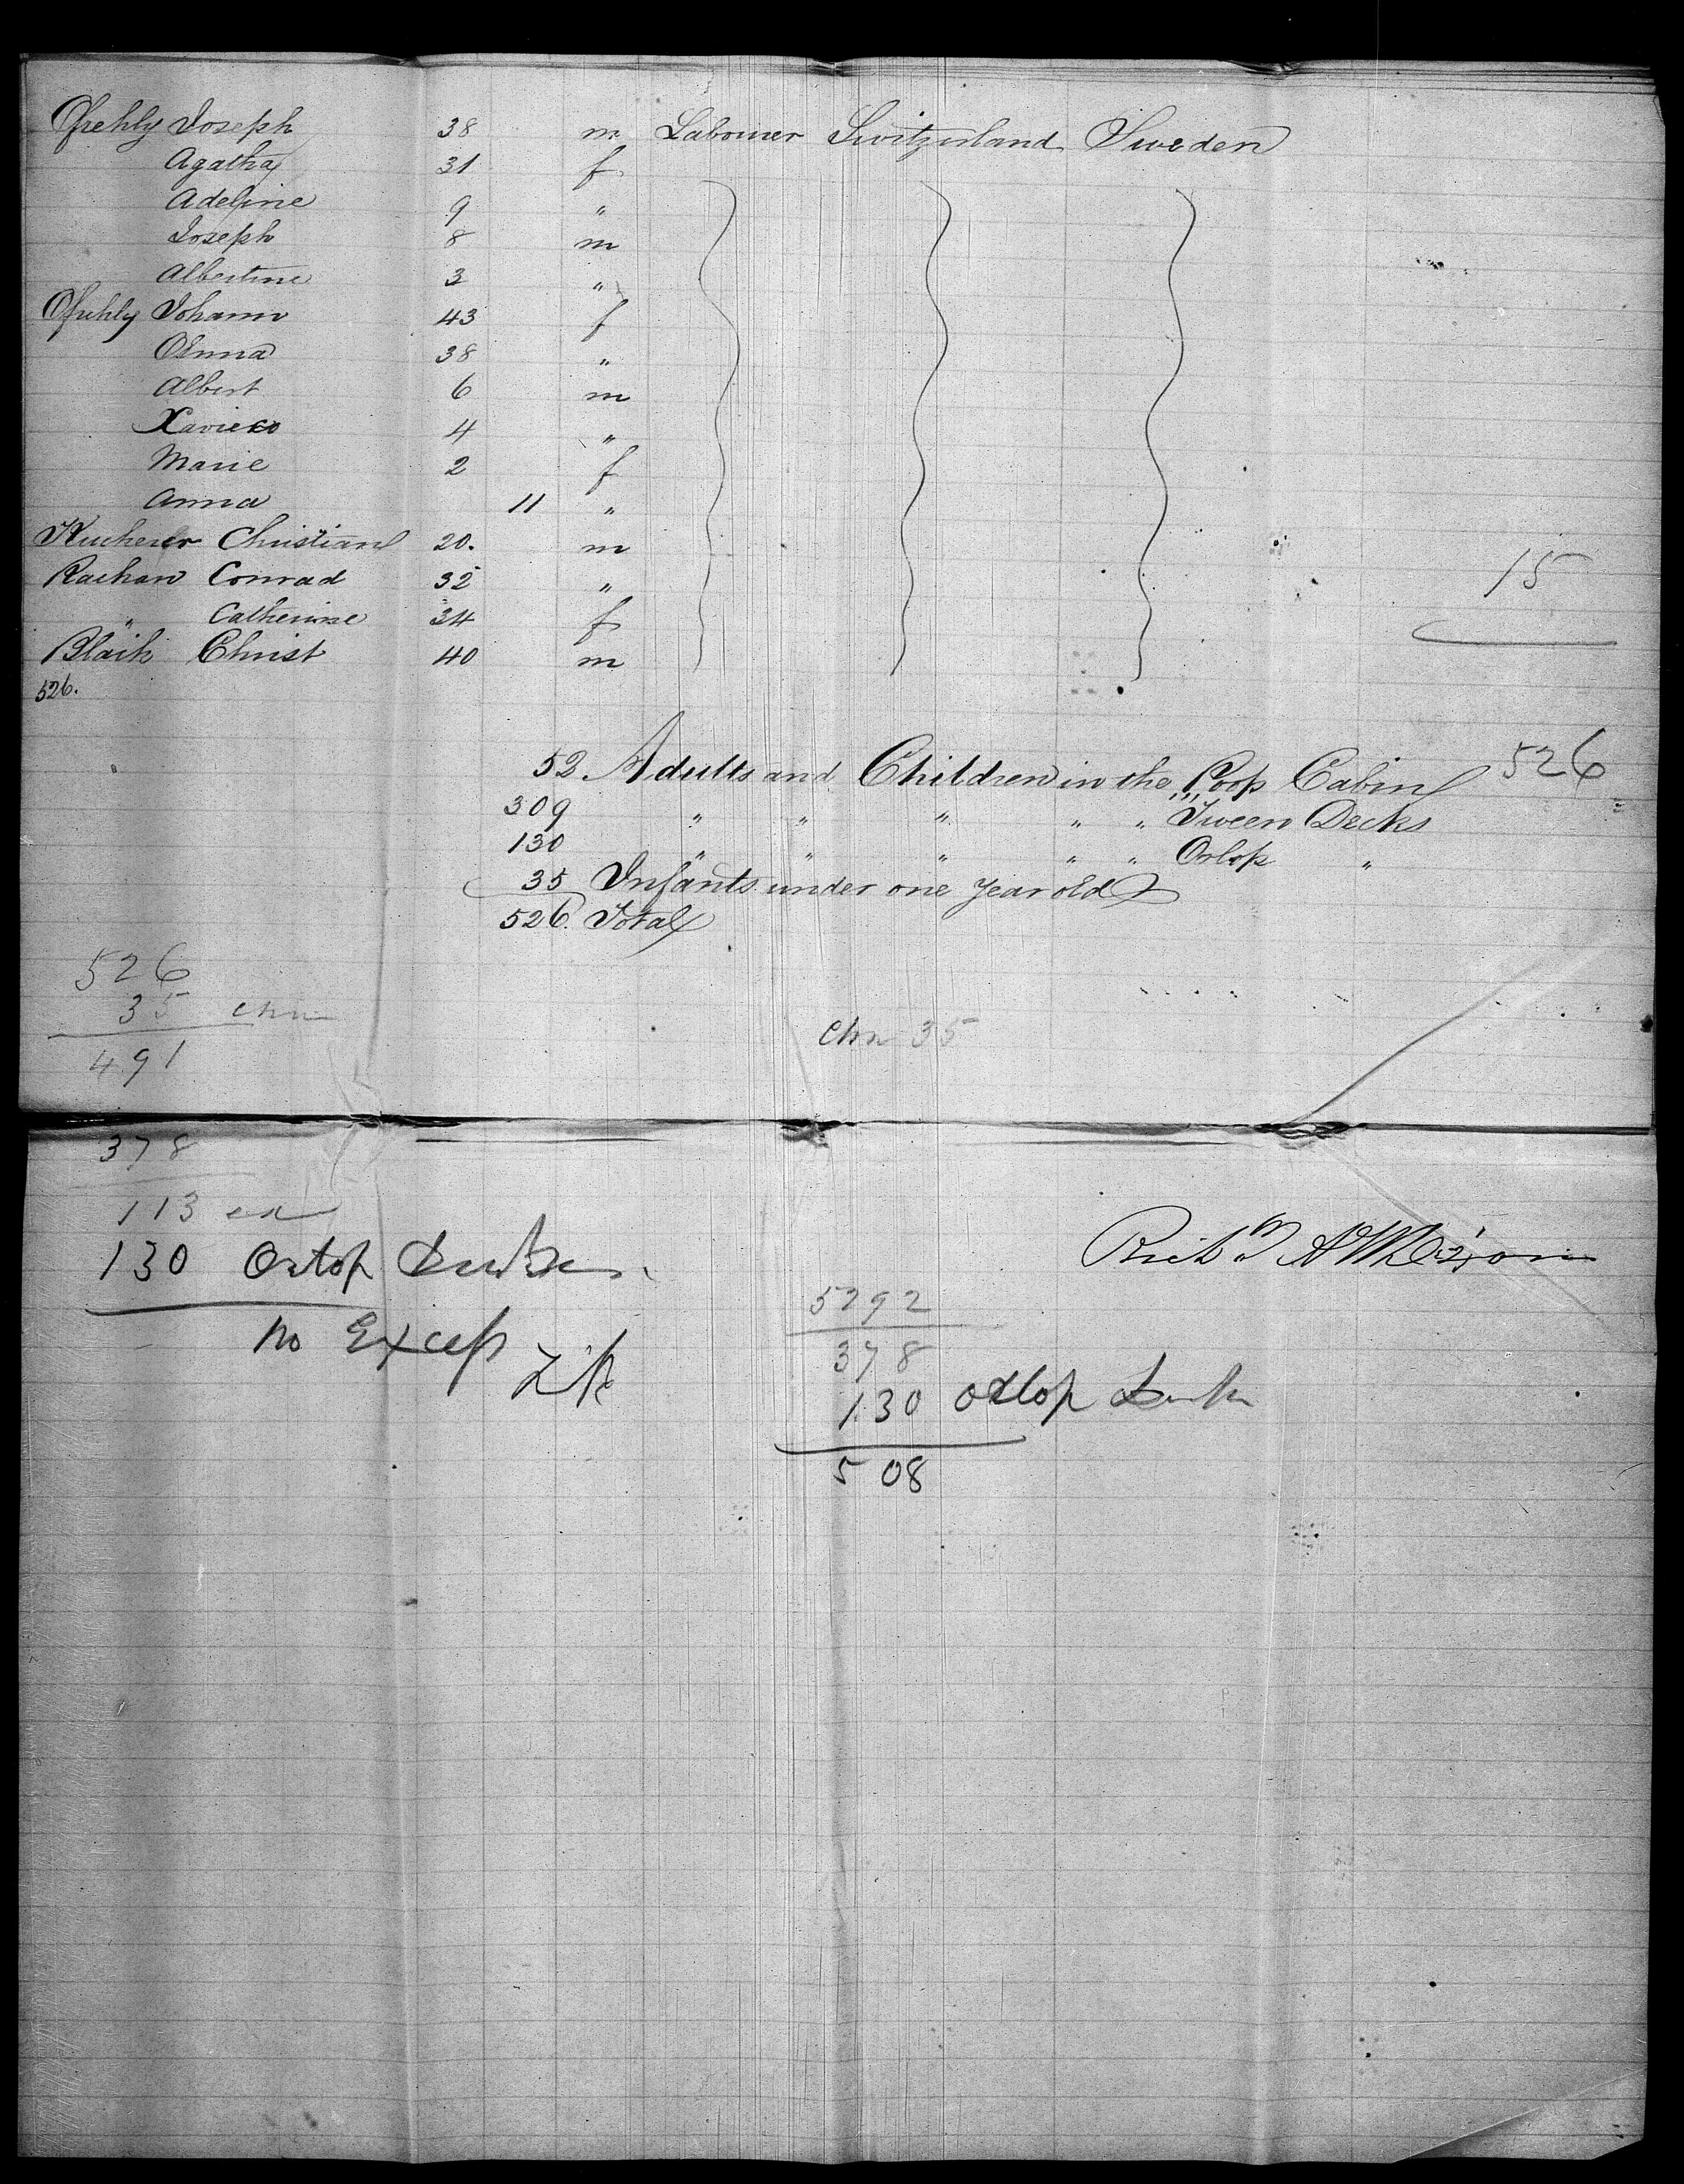 Ofrehly Joseph 38 m Labourer Switzerland Sweden
Agatha 31 f
Adeline 9 "
Joseph 8 m
Albertine 3 "
Ofrehly Johann 43 f
Anna 38 "
Albert 6 m
Xavier 4 "
Marie 2 f
Anna 11 "
Kucherer Christian 20. m
Rachan Conrad 32 "
" Catherine 34 f
Blaih Christ 40 m
15
526.
52 Adults and Children in the Poop Cabin 526
309 " " " " " Tween Decks
130 " " " " " Orlop "
35 Infants under one year old
526. Total
526
35 chn
491
chn 35
378
113
130 Orlop
no Excess
Rich^d
5292
378
130 Orlop
508